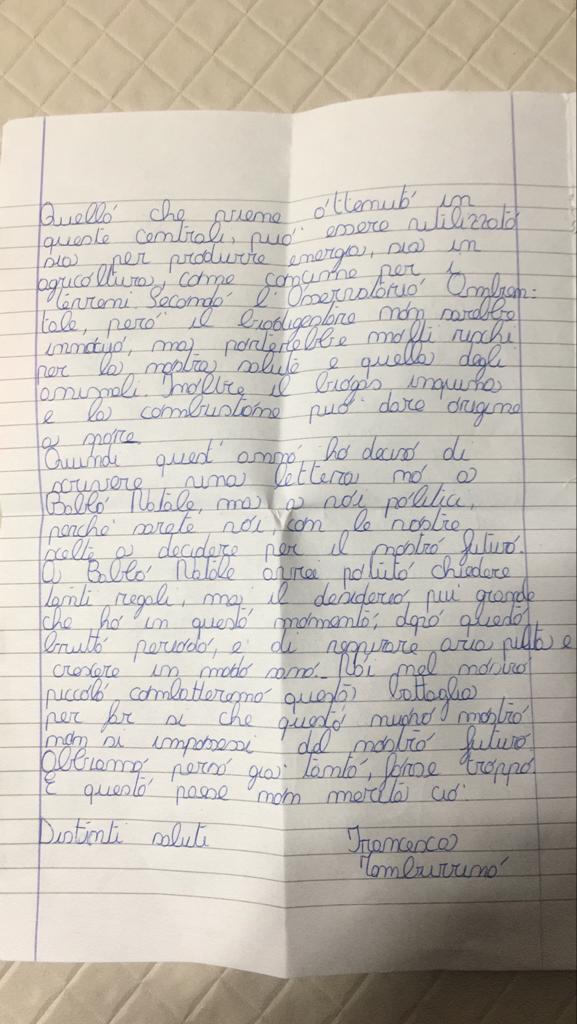 Quello che viene ottenuto in
queste centrali, può essere utilizzato
sia per produrre energia, sia in
agricoltura, come concime per i
terreni. Secondo l'Osservatorio Ambien=
tale, però il biodigestore non sarebbe
innocuo, ma porterebbe molti rischi
per la nostra salute e quella degli
animali. Inoltre il biogas inquina
e la combustione può dare origine
a
Quindi quest'anno ho deciso di
scrivere una lettera no a
Babbo Natale, ma a voi politici,
perché sarete voi, con le vostre
scelte a decidere per il nostro futuro.
A Babbo Natale avrei potuto chiedere
tanti regali, ma il desiderio più grande
che ho in questo momento, dopo questo
brutto periodo, e di respirare aria pulita e
crescere in modo sano. Noi nel nostro
piccolo combatteremo questa battaglia
per far si che questo nuovo mostro
non si impossessi del nostro futuro.
Abbiamo perso già tanto, forse troppo.
E questo paese non merita ciò.
Distinti saluti Francesca
Tamburrino